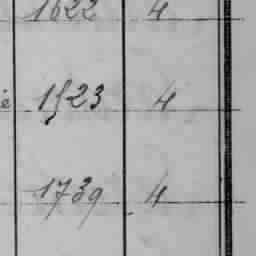 1622 4
é 1523 4
1739 4